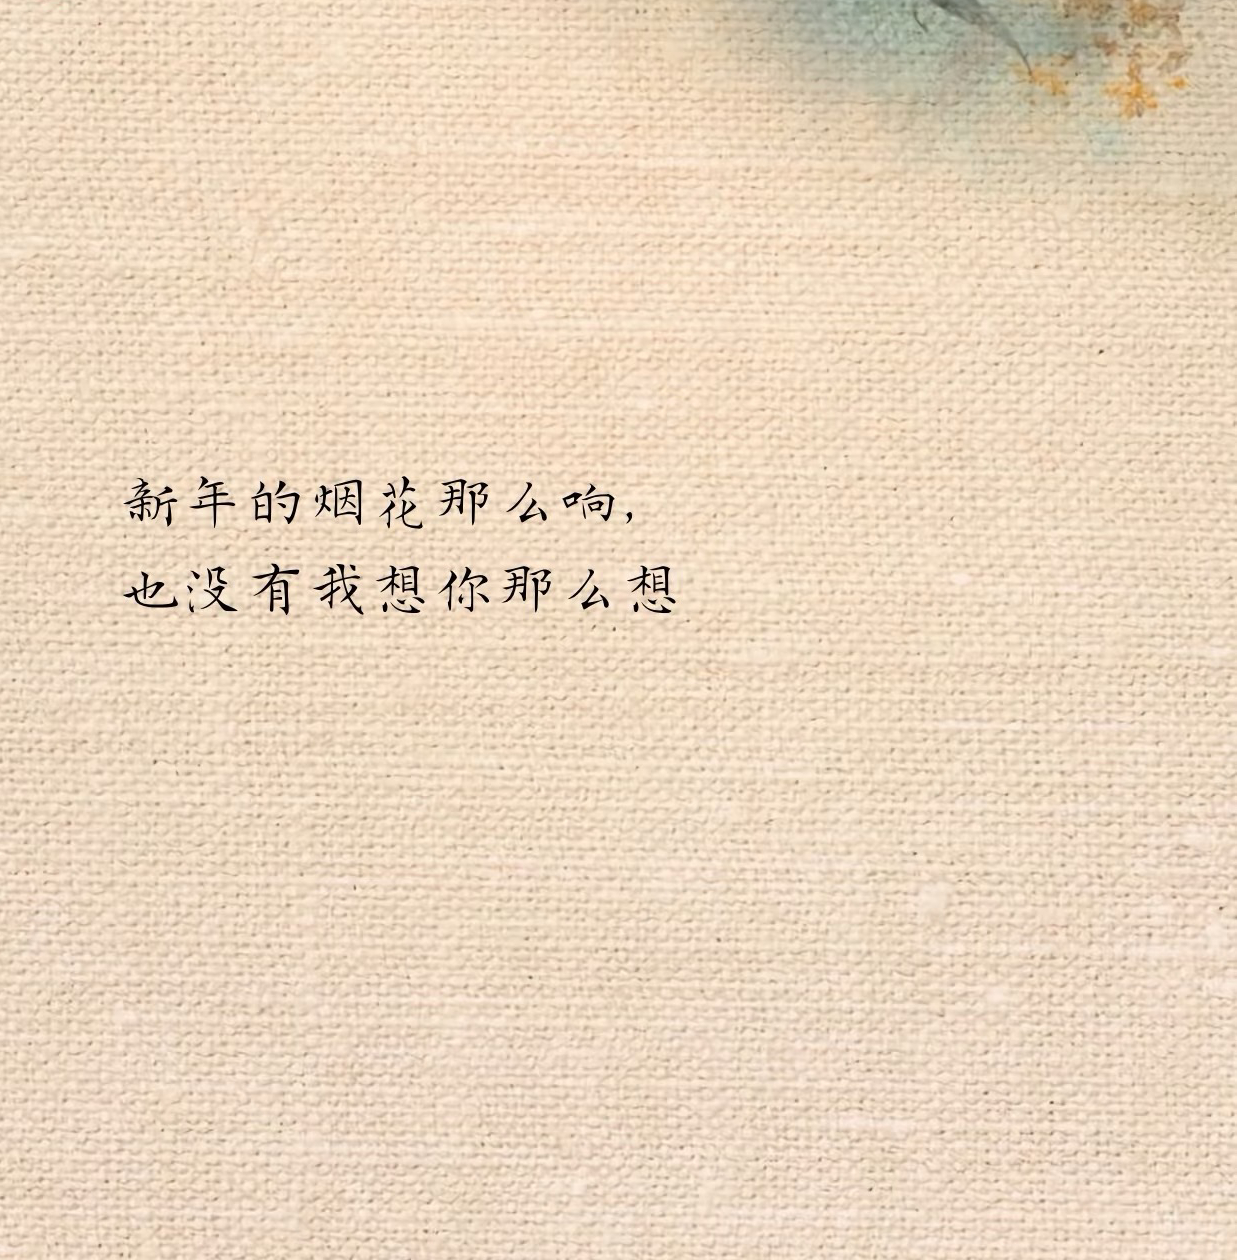 新年的烟花那么响,
也没有我想你那么想